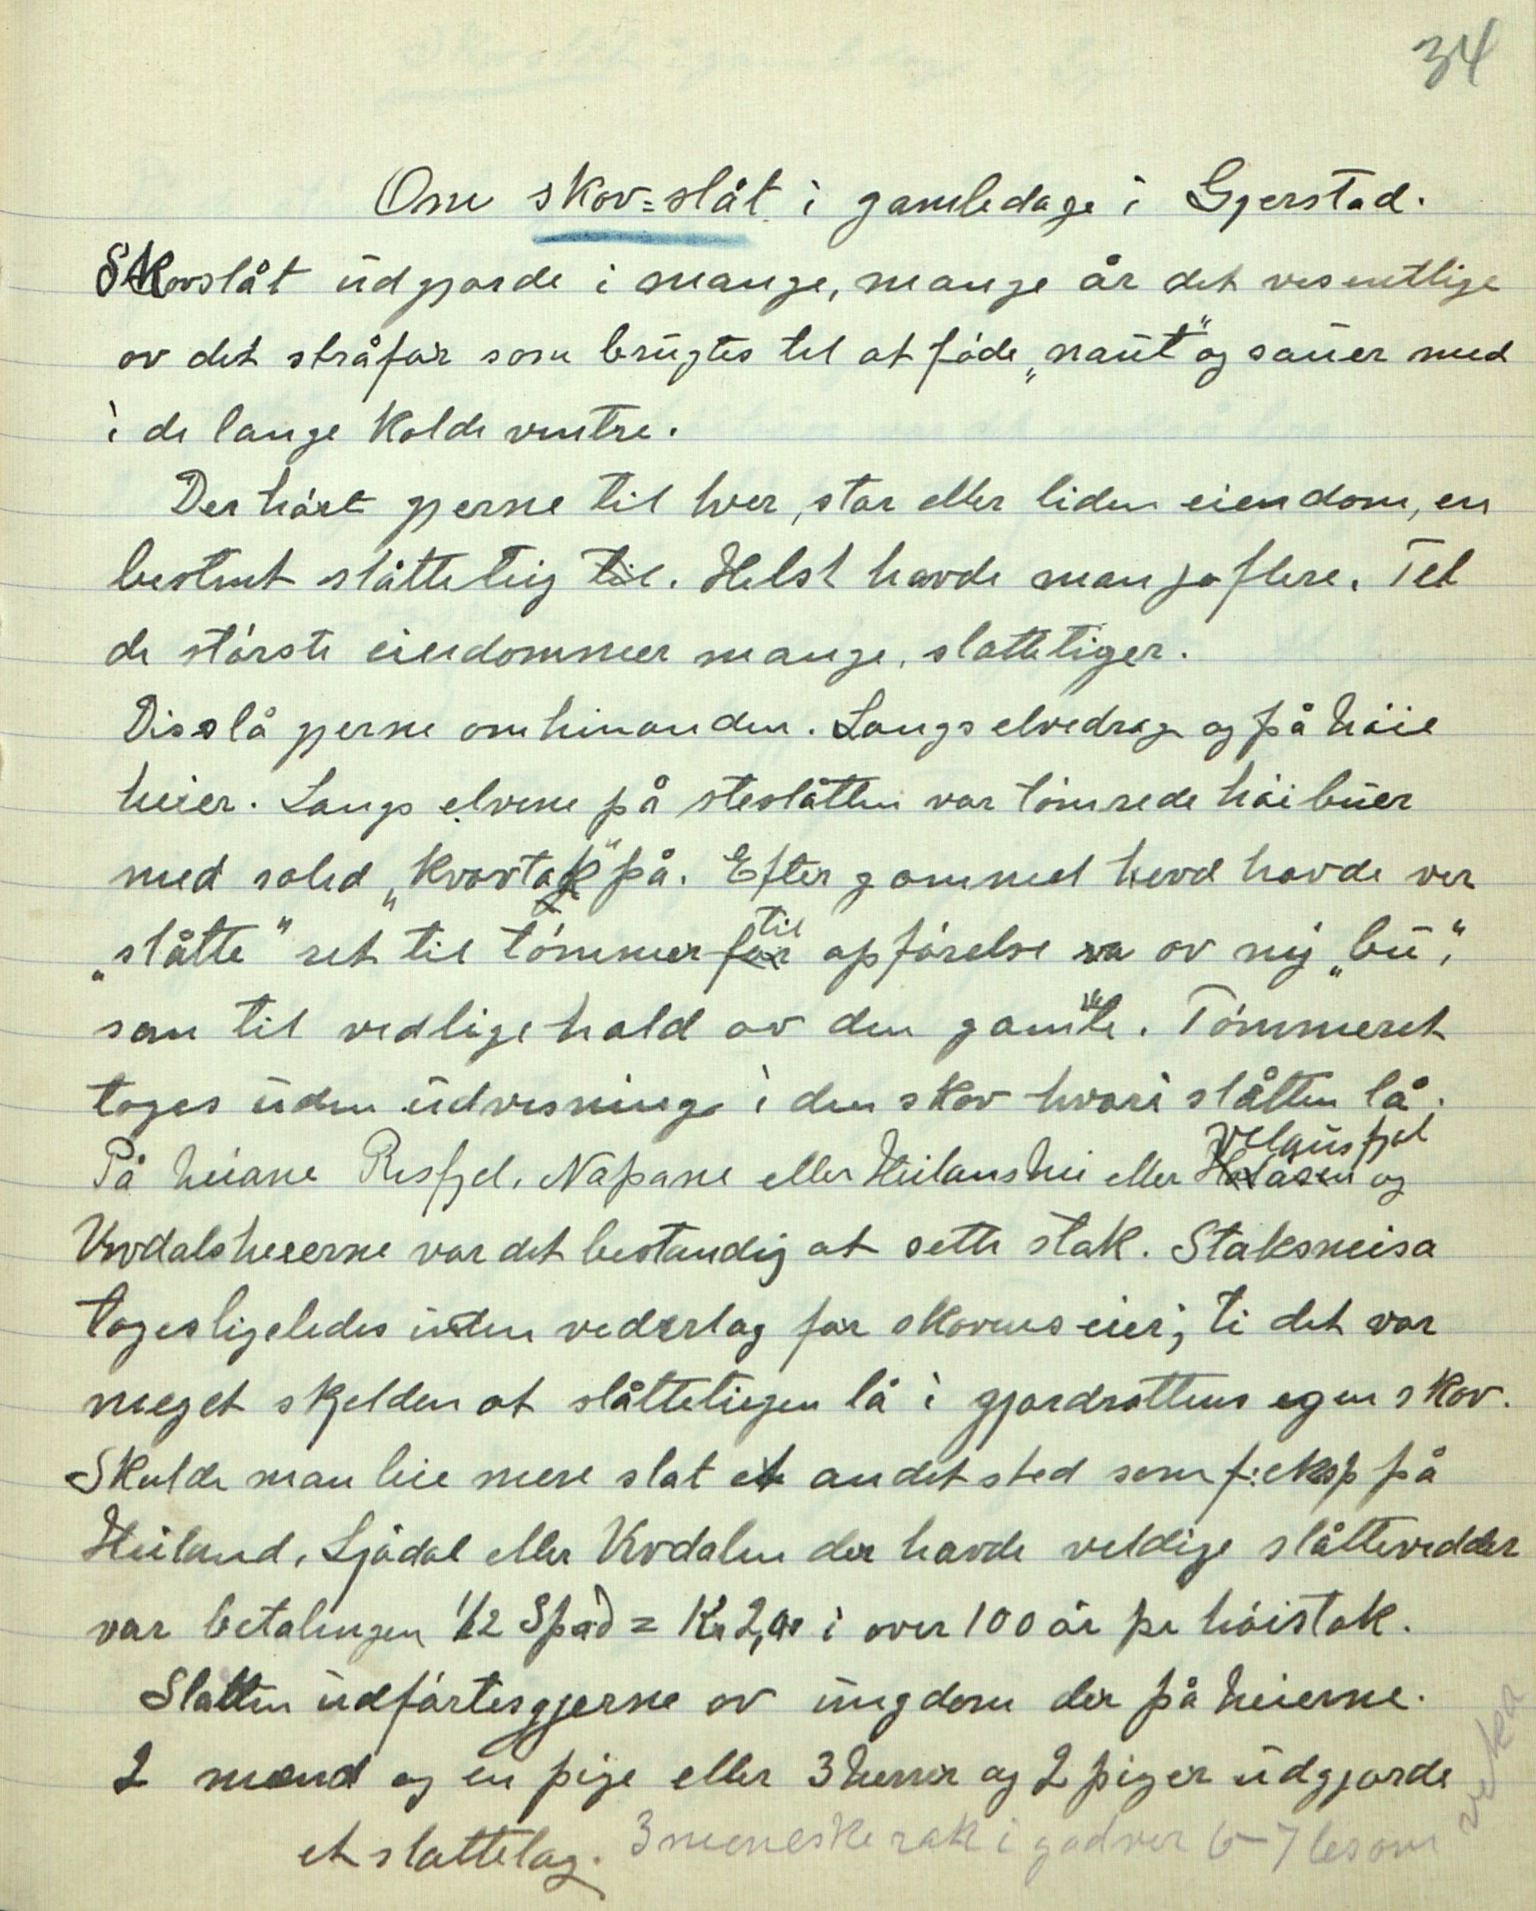 34
Om skov=slåt i gamledage i Gjerstad.
Skovslåt udgjorde i mange, mange år det vesentlige
av det stråfor som brugtes til at føde „naut" og sauer med
i de lange kolde vintre.
Der hørt gjerne til hver, stor eller liden eiendom, en
bestemt slåtteteig til. Helst havde man jo flere. Til
de største eiendommer mange, slåtteteiger.
Disse lå gjerne om hinanden. Langs elvedrag og på høie
heier. Langs elvene på støslåtten var tømrede høibuer
med solid „kvovtak" på. Efter gammel hevd havde ver
„slåtte" ret til tømmer til opførelse av ny „bu",
som til vedligehold av den gamle. Tømmeret
toges uden udvisning i den skov hvori slåtten lå.
På heiane Risfjel, Napane eller Heilandshei eller Velgusfjel og
Vovdalsheierne var det bestandig at sette stak. Staksneisa
toges ligeledes uten vederlag for skovens eier; ti det var
meget skjelden at slåtteteigen lå i gjordrottens egen skov.
Skulde man leie mere slåt et andet sted som f: eksp på
Heiland, Ljådal eller Vovdalen der havde veldige slåttevidder
var betalingen 1/2 Spd = Kr 2,00 i over 100 år pr høistak.
Slåtten udførtes gjerne av ungdom der på heierne.
2 mænd og en pige eller 3 herrer og 2 piger udgjorde
et slåttelag. 3 meneske rak i godver 6-7 les om
veka